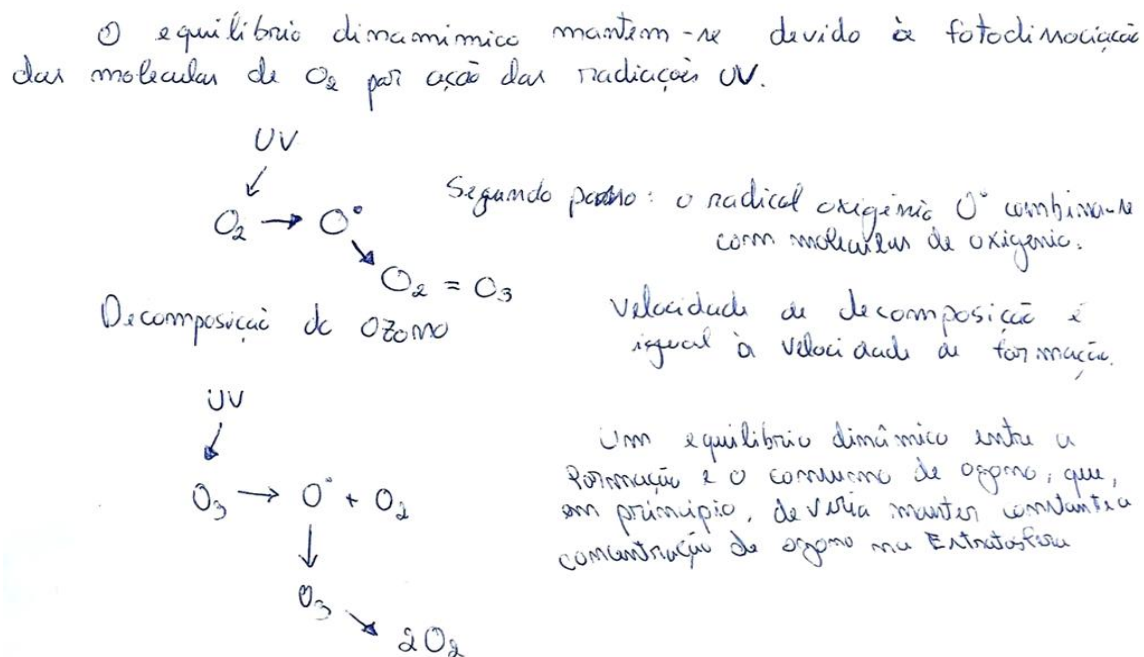 O equilibrio dinamimico mantem-se devido à fotodissociação
das moleculas de O₂ por ação das radiações UV.
UV
O₂ → O°
O₂ = O₃
Segundo passo: o radical oxigénio O° combina-se
com moleculas de oxigenio.
Decomposição do Ozono
Velocidade de decomposição é
igual à velocidade de formação.
UV
O₃ → O° + O₂
O₃
2O₂
Um equilibrio dinâmico entre a
Formação e o consumo de ozono, que,
em principio, deveria manter constante a
concentração de ozono na Estratosfera